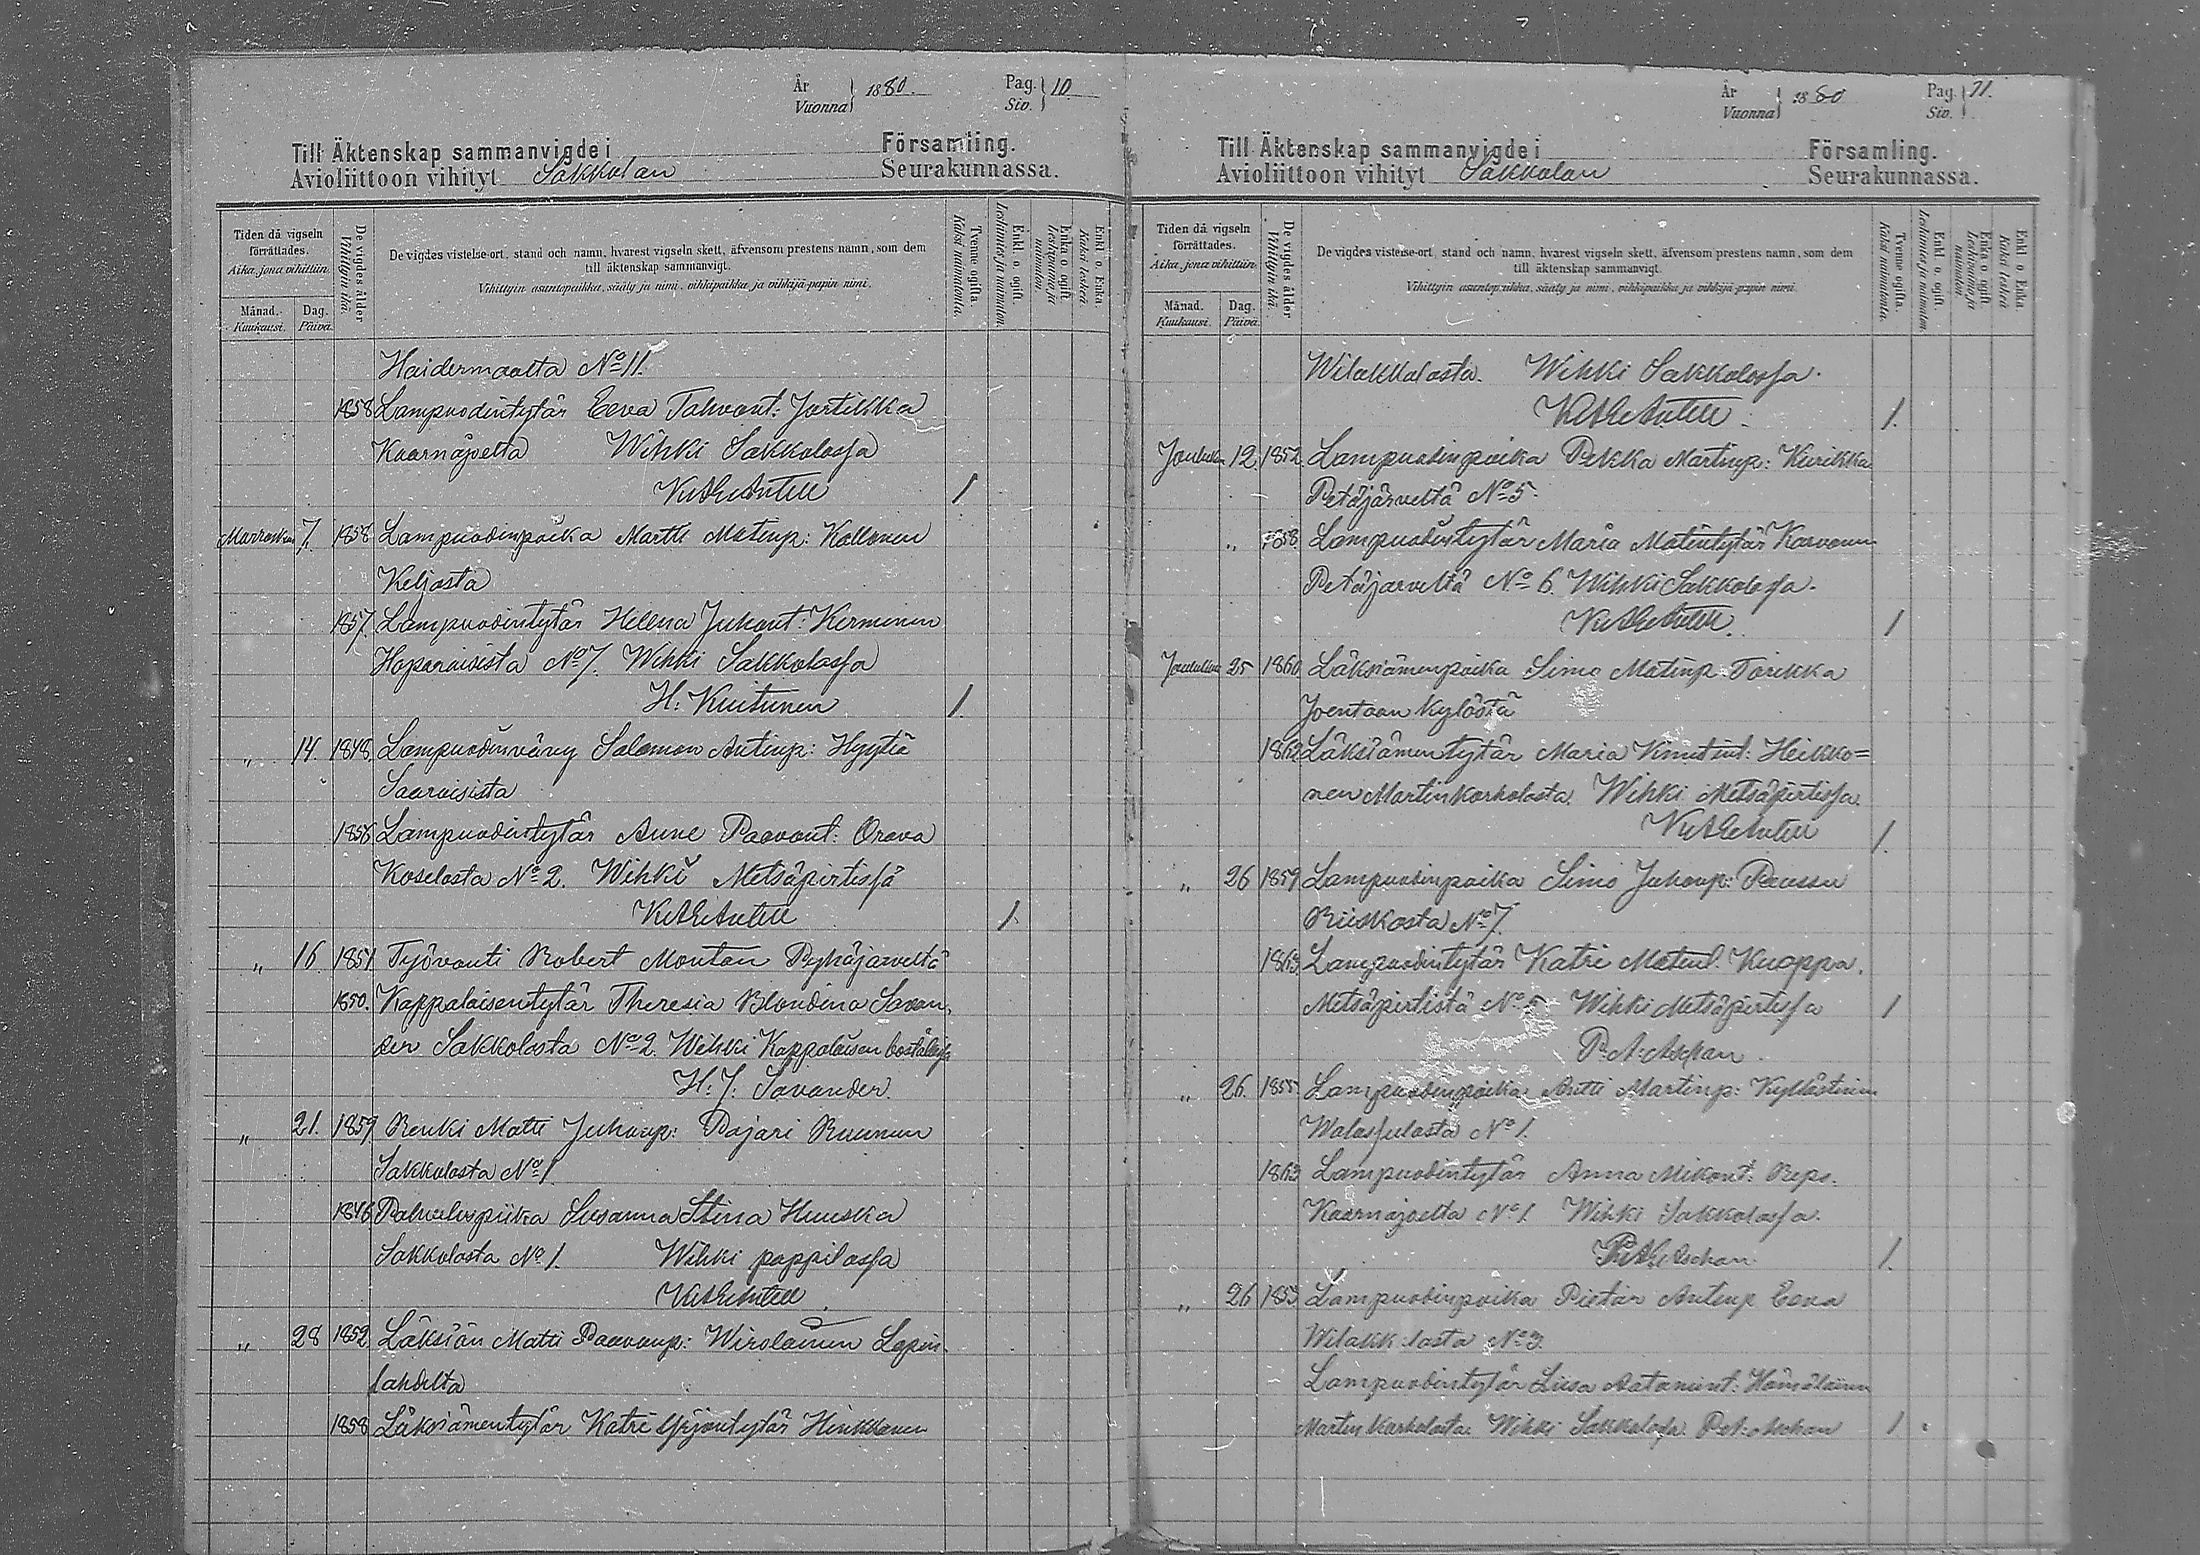 År
Vuonna 1880. Pag. Siv. 10
Till Äktenskap sammanvigde i Församling.
Avioliittoon vihityt Sakkolan Seurakunnassa.
Tiden då vigseln förrättades.
Aika, jona vihittiin.
Månad. Kuukausi.
Dag. Päivä.
De vigdes ålder
Vihittyin ikä.
De vigdes vistelse-ort, stand och namn, hvarest vigseln skett, äfvensom prestens namn, som dem
till äktenskap sammanvigt.
Vihittyin asuntopaikka, sääty ja nimi, vihkipaikka ja vihkijä-papin nimi.
Tvenne ogifta.
Kaksi naimatonta.
Enkl. o. ogift.
Leskimies ja naimaton.
Enka o. ogift.
Leskivaimo ja naimaton.
Enkl. o. Enka.
Kaksi leskeä
Haidermaalta No 11.
1858 Lampuodintytär Eeva Tahvont: Jortikka
Kaarnajoelta Wihki Sakkolassa
1
Marraskuu 7. 1858 Lampuodinpoika Martti Matinp: Kallonen
Keljasta
1857 Lampuodintytär Helena Juhont: Kerminen
Haparaisista No 7. Wihki Sakkolassa
H: Kuitunen 1.
" 14. 1848 Lampuodinvävy Salomon Antinp: Hyytiä
Saaroisista
1856 Lampuodintytär Anne Paavont: Orava
Koselasta No 2. Wihki Metsäpirtissä
1.
" 16. 1851 Työvouti Robert Montan Pyhäjärveltä
1850. Kappalaisentytär Theresia Blondina Savan-
der Sakkolasta No 2. Wihki Kappalaisen
H: J: Savander.
" 21. 1859 Renki Matti Juhanp: Pajari Ruunun
Sakkolasta No 1
1846 Palveluspiika Susanna Stina Huuska
Sakkolasta No 1. Wihki pappilassa
" 28 1852 Läksiän Matti Paavonp: Wirolainen Lapin-
lahdelta
1858 Läksiämentytär Katri Yrjöntytär Hinkkanen
År
Vuonna 1880 Pag. Siv. 11.
Till Äktenskap sammanvigde i Församling.
Avioliittoon vihityt Sakkolan Seurakunnassa.
Tiden då vigseln förrättades.
Aika, jona vihittiin.
Månad. Kuukausi.
Dag. Päivä.
De vigdes ålder
Vihittyin ikä.
De vigdes vistelse-ort, stand och namn, hvarest vigseln skett, äfvensom prestens namn, som dem
till äktenskap sammanvigt.
Vihittyin asuntopaikka, sääty ja nimi, vihkipaikka ja vihkijä-papin nimi.
Tvenne ogifta.
Kaksi naimatonta.
Enkl. o. ogift.
Leskimies ja naimaton.
Enka o. ogift.
Leskivaimo ja naimaton.
Enkl o. Enka
Kaksi leskeä
Wilakkalasta. Wihki Sakkolassa.
1.
Jouluku 12. 1852 Lampuodinpoika Pekka Martinp: Kurikka
Petäjärveltä No 5.
" 1858 Lampuodintytär Maria Matintytär Karvanen
Petäjärveltä No 6. Wihki Sakkolassa.
1
Joulukuu 25 1860 Läksiämenpoika Simo Matinp. Torikka
Joentaan kylästä
1862 Läksiämentytär Maria Heikko=
nen Martinkarholasta. Wihki Metsäpirtissä.
1.
" 26 1859 Lampuodinpoika Simo Juhonp: Puussu
Riiskasta No 7.
1863 Lampuodintytär Katri Matint. Kuoppa.
Metsäpirtistä No 5 Wihki Metsäpirtissä 1
P: A: Aschan.
" 26. 1855 Lampuodinpoika Antti Martinp: Kyllästinen
Walasjulasta No 1.
1863 Lampuodintytär Anna Mikont: Repo.
Kaarnajoelta No 1. Wihki Sakkolassa.
Aschan 1.
" 26 1853 Lampuodinpoika Pietar Antinp Eeva
Wilakkalasta No 3.
Lampuodintytär Liisa Aatamint: Hämäläinen
Martinkarholasta. Wihki Sakkolassa. P.A: Aschan 1